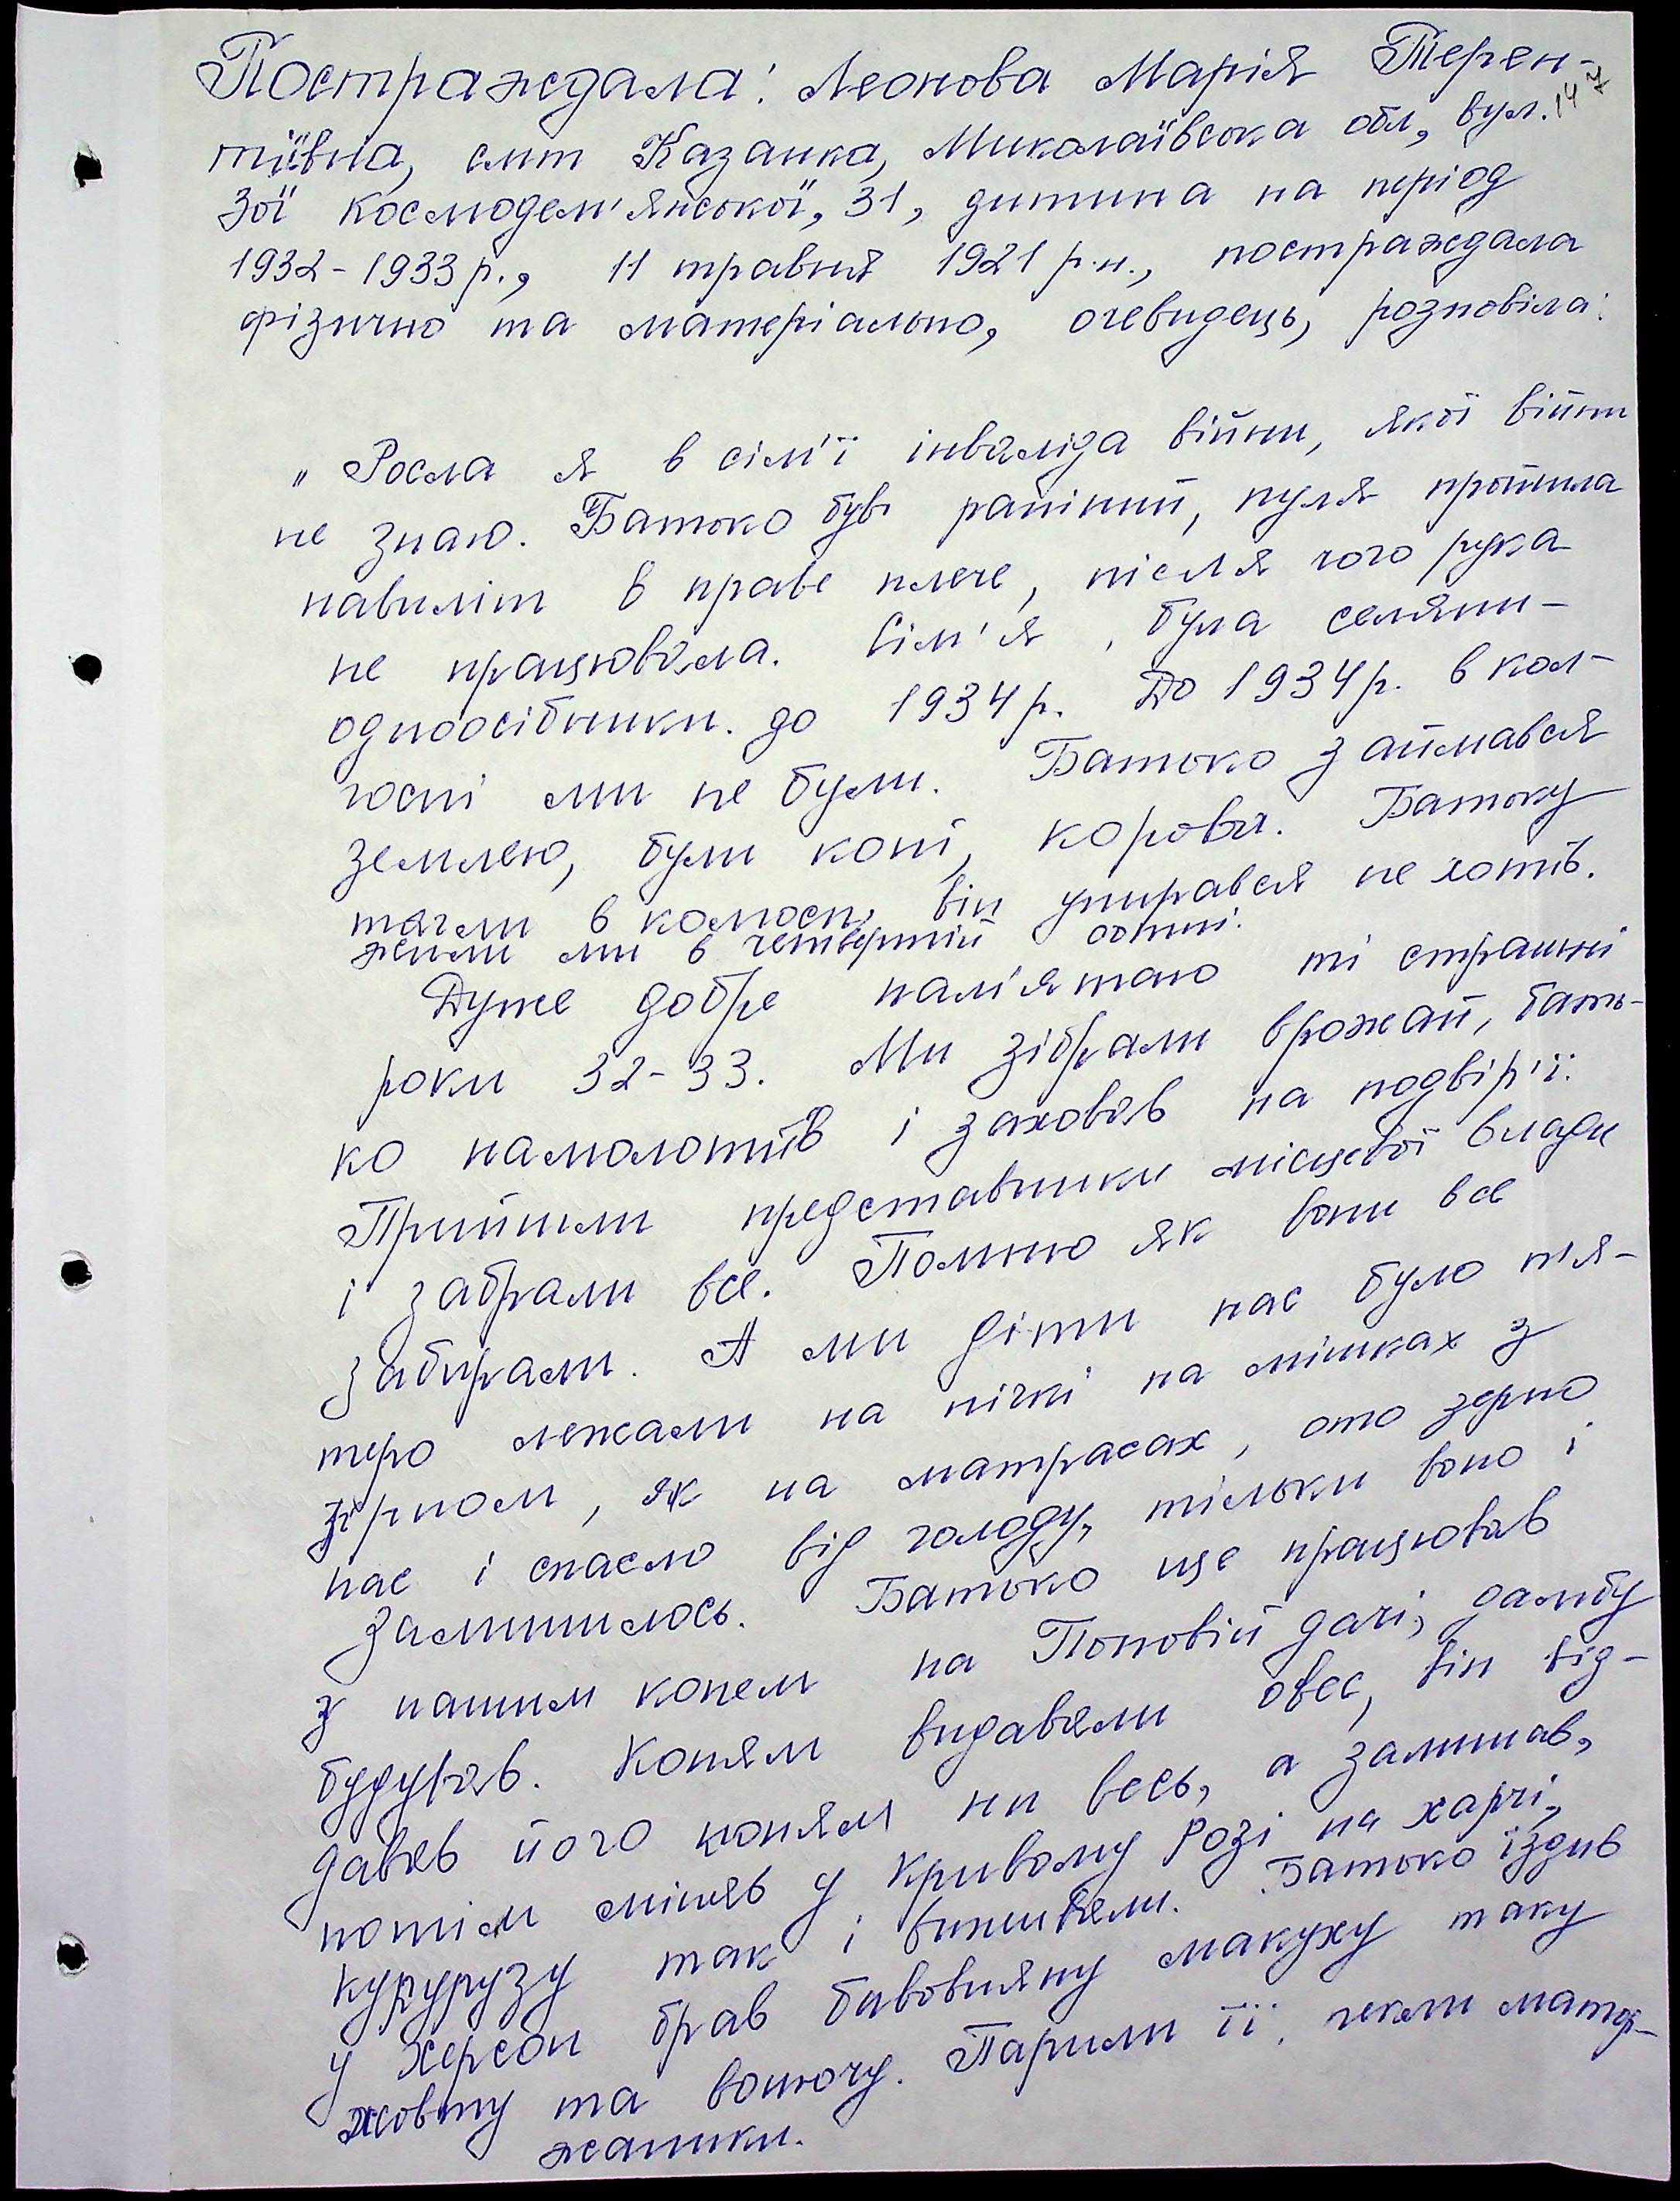 Постраждала: Леонова Марія Терен-
147
тіївна, смт Казанка, Миколаївська обл, вул.
Зої Космодем'янської, 31, дитина на період
1932-1933 р., 11 травня 1921 р.н., постраждала
фізично та матеріально, очевидець, розповіла:
„Росла я в сім'ї інваліда війни, якої війни
не знаю. Батько був раніний, пуля пройшла
навиліт в праве плече, після чого рука
не працювала. Сім'я була селяни-
одноосібники до 1934 р. До 1934 р. в кол-
госпі ми не були. Батько займався
землею, були коні, корова. Батьку
тягли в колгосп, він упирався не хотів.
жили ми в четвертій сотні.
Дуже добре пам'ятаю ті страшні
роки 32-33. Ми зібрали врожай, бать-
ко намолотив і заховав на подвір'ї.
Прийшли представники місцевої влади
і забрали все. Помню як вони все
забирали. А ми діти нас було п'я-
теро лежали на пічкі на мішках з
зерном, як на матрасах, ото зерно
нас і спасло від голоду, тільки воно і
залишилось. Батько ще працював
з нашим конем на Поповій дачі, дамбу
будував. Коням видавали овес, він від-
давав його коням ни весь, а залишав,
потім міняв у Кривому Розі на харчі,
курурузу так і виживали. Батько їздив
у Херсон брав бавовняну макуху таку
жовту та вонючу. Парили її, пекли матор-
жаники.